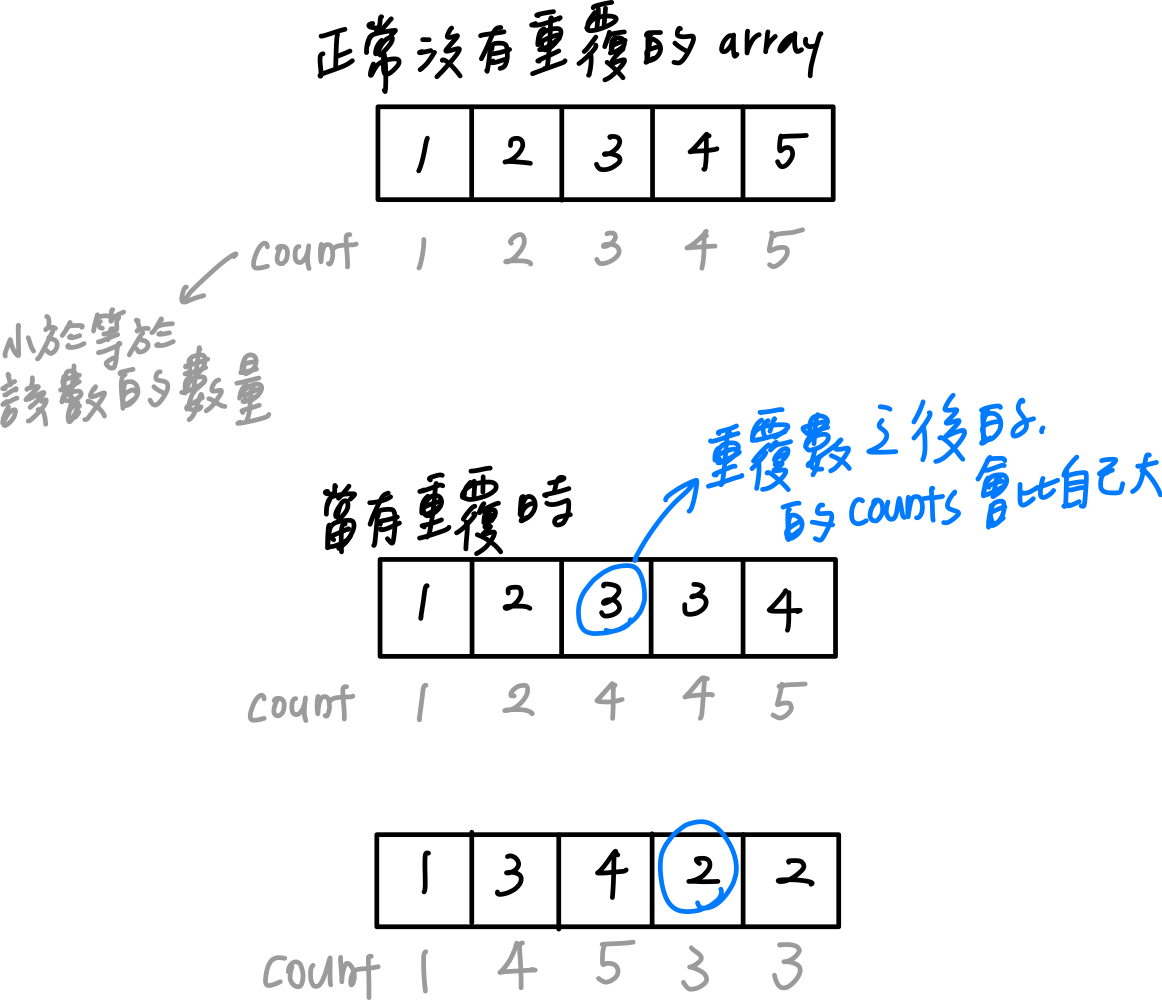 正常沒有重覆的 array
1 2 3 4 5
count 1 2 3 4 5
小於等於
該數的數量
重覆數之後的.
的 counts 會比自己大
當有重覆時
1 2 3 3 4
count 1 2 4 4 5
1 3 4 2 2
count 1 4 5 3 3